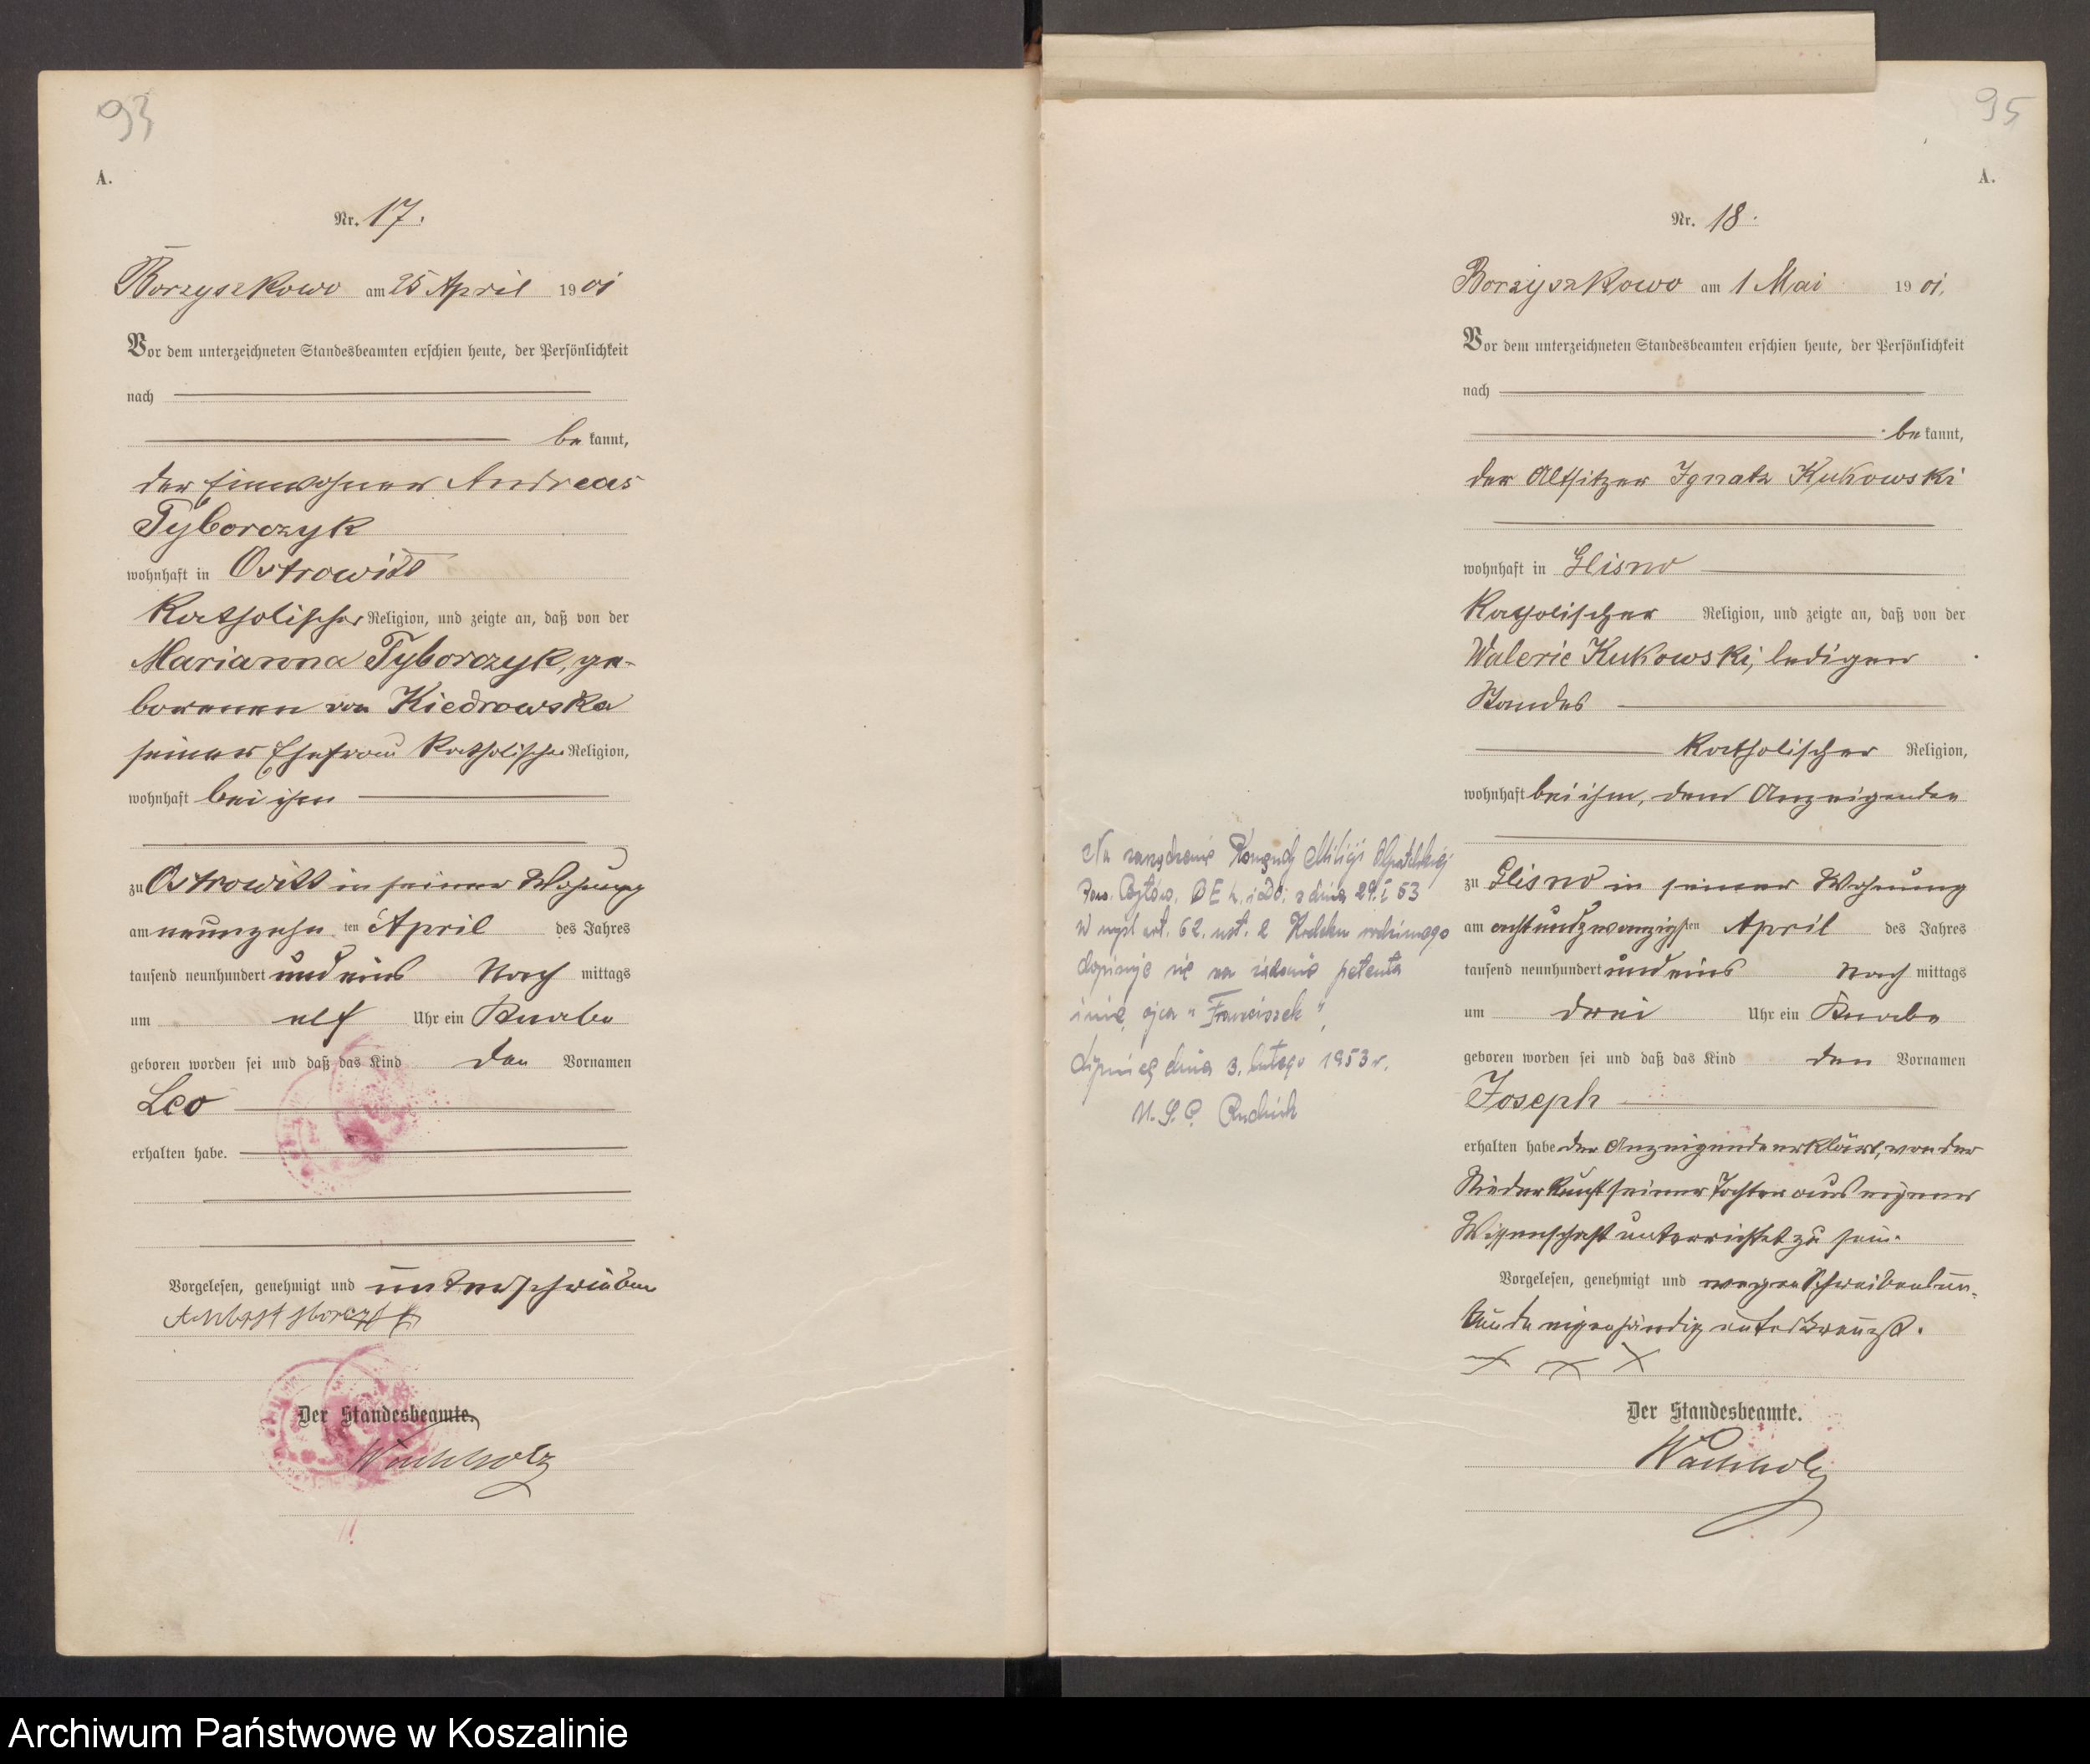 93
A.
Nr. 17.
Borzyszkowo am 25 April 1901
Vor dem unterzeichneten Standesbeamten erschien heute, der Persönlichkeit
nach
be kannt,
der Einwohner Andreas
Tyborczyk
wohnhaft in Ostrowitt
katholischer Religion, und zeigte an, daß von der
Marianna Tyborczyk, ge-
borenen von Kiedrowska
seiner Ehefrau katholischer Religion,
wohnhaft bei ihm
zu Ostrowitt in seiner Wohnung
am neunzehn ten April des Jahres
tausend neunhundert und eins Nach mittags
um elf Uhr ein Knabe
geboren worden sei und daß das Kind den Vornamen
Leo
erhalten habe.
Vorgelesen, genehmigt und unterschrieben
Der Standesbeamte.
Wachholz
95
A.
Nr. 18.
Borzyszkowo am 1 Mai 1901.
Vor dem unterzeichneten Standesbeamten erschien heute, der Persönlichkeit
nach
be kannt,
der Altsitzer Ignatz Kukowski
wohnhaft in Glisno
katholischer Religion, und zeigte an, daß von der
Walerie Kukowski, lediger
Standes
katholischer Religion,
wohnhaft bei ihm, dem Anzeigenden
zu Glisno in seiner Wohnung
am achtundzwanzigsten April des Jahres
tausend neunhundert und eins Nach mittags
um drei Uhr ein Knabe
geboren worden sei und daß das Kind den Vornamen
Joseph
erhalten habe der Anzeigende erklärt, von der
Niederkunft seiner Tochter aus eigener
Wissenschaft unterrichtet zu sein.
Vorgelesen, genehmigt und wegen Schreibenun-
kunde eigenhändig unterkreuzt.
x x x
Der Standesbeamte.
Wachholz
Na zarządzenie Milicji Obywatelskiej
Pow. Bytów. z dnia 29.I 53
W myśl art. 62. ust. 2 Kodeksu rodzinnego
dopisuje się na żądanie petenta
imię ojca "Franciszek"
Lipnica dnia 3. lutego 1953 r.
U.S.C.
Archiwum Państwowe w Koszalinie